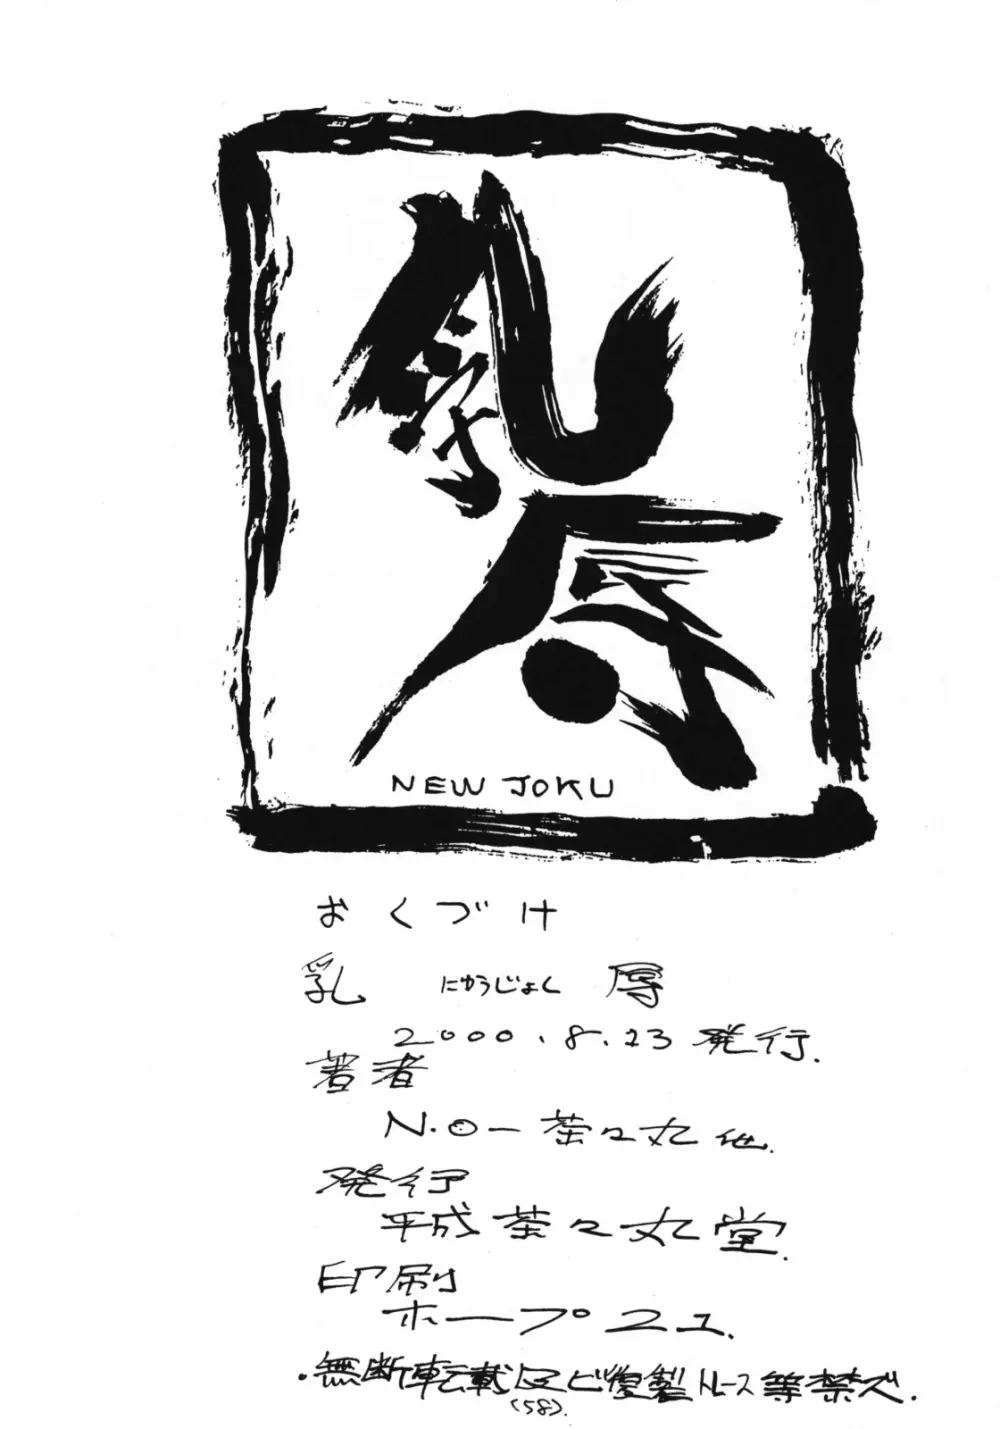 乳辱
NEW JOKU
おくづけ
乳 にゅうじょく 辱
2000.8.13発行.
著者
N.O－茶々丸 他.
発行
平成茶々丸堂.
印刷
ホープ21.
・無断転載及ビ複製トレース等禁ズ.
(58).